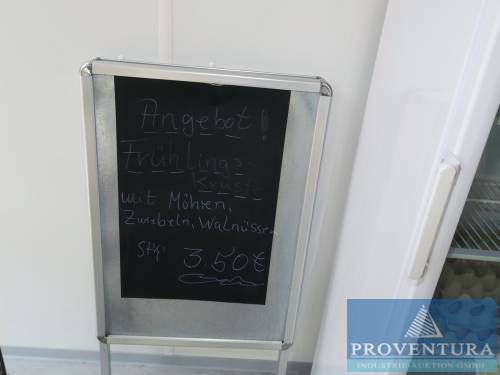 Angebot!
Frühlings-
kruste
mit Möhren,
Zwiebeln, Walnüssen
Stk: 3.50€
PROVENTURA
INDUSTRIEAUKTION GMBH